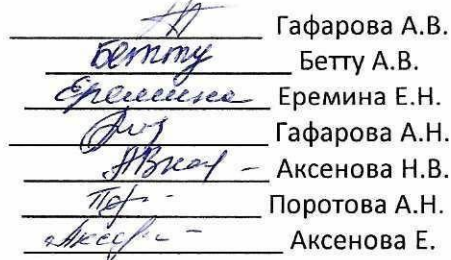 Гафарова А.В.
Бетту Бетту А.В.
Еремина Еремина Е.Н.
Гафарова А.Н.
Аксенова Н.В.
Поротова А.Н.
Аксенова Е.